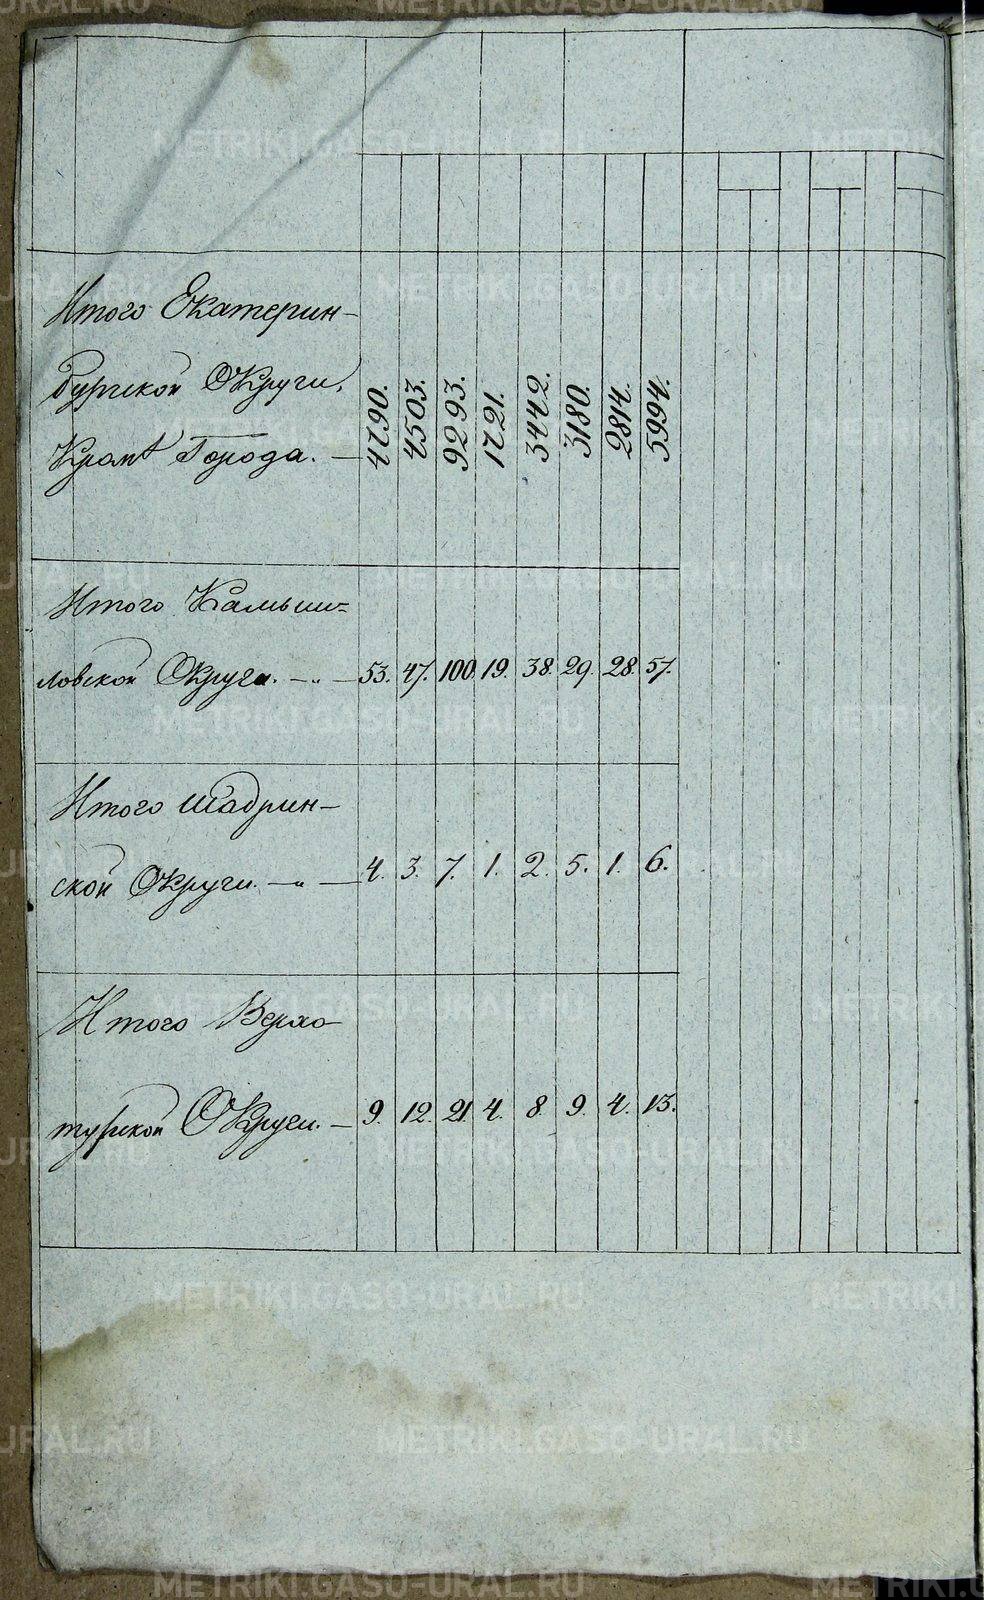 Итого Екатерин-
бургской Округи,
Кромѣ Города. — 4790. 4503. 9293. 1721. 3442. 3180. 2814. 5994.
Итого Камыш-
ловской Округи. — „ — 53. 47. 100. 19. 38. 29. 28. 57.
Итого Шадрин-
ской Округи. — „ — 4. 3. 7. 1. 2. 5. 1. 6.
Итого Верхо-
турской Округи. — 9. 12. 21. 4. 8. 9. 4. 13.
METRIKI.GASO-URAL.RU